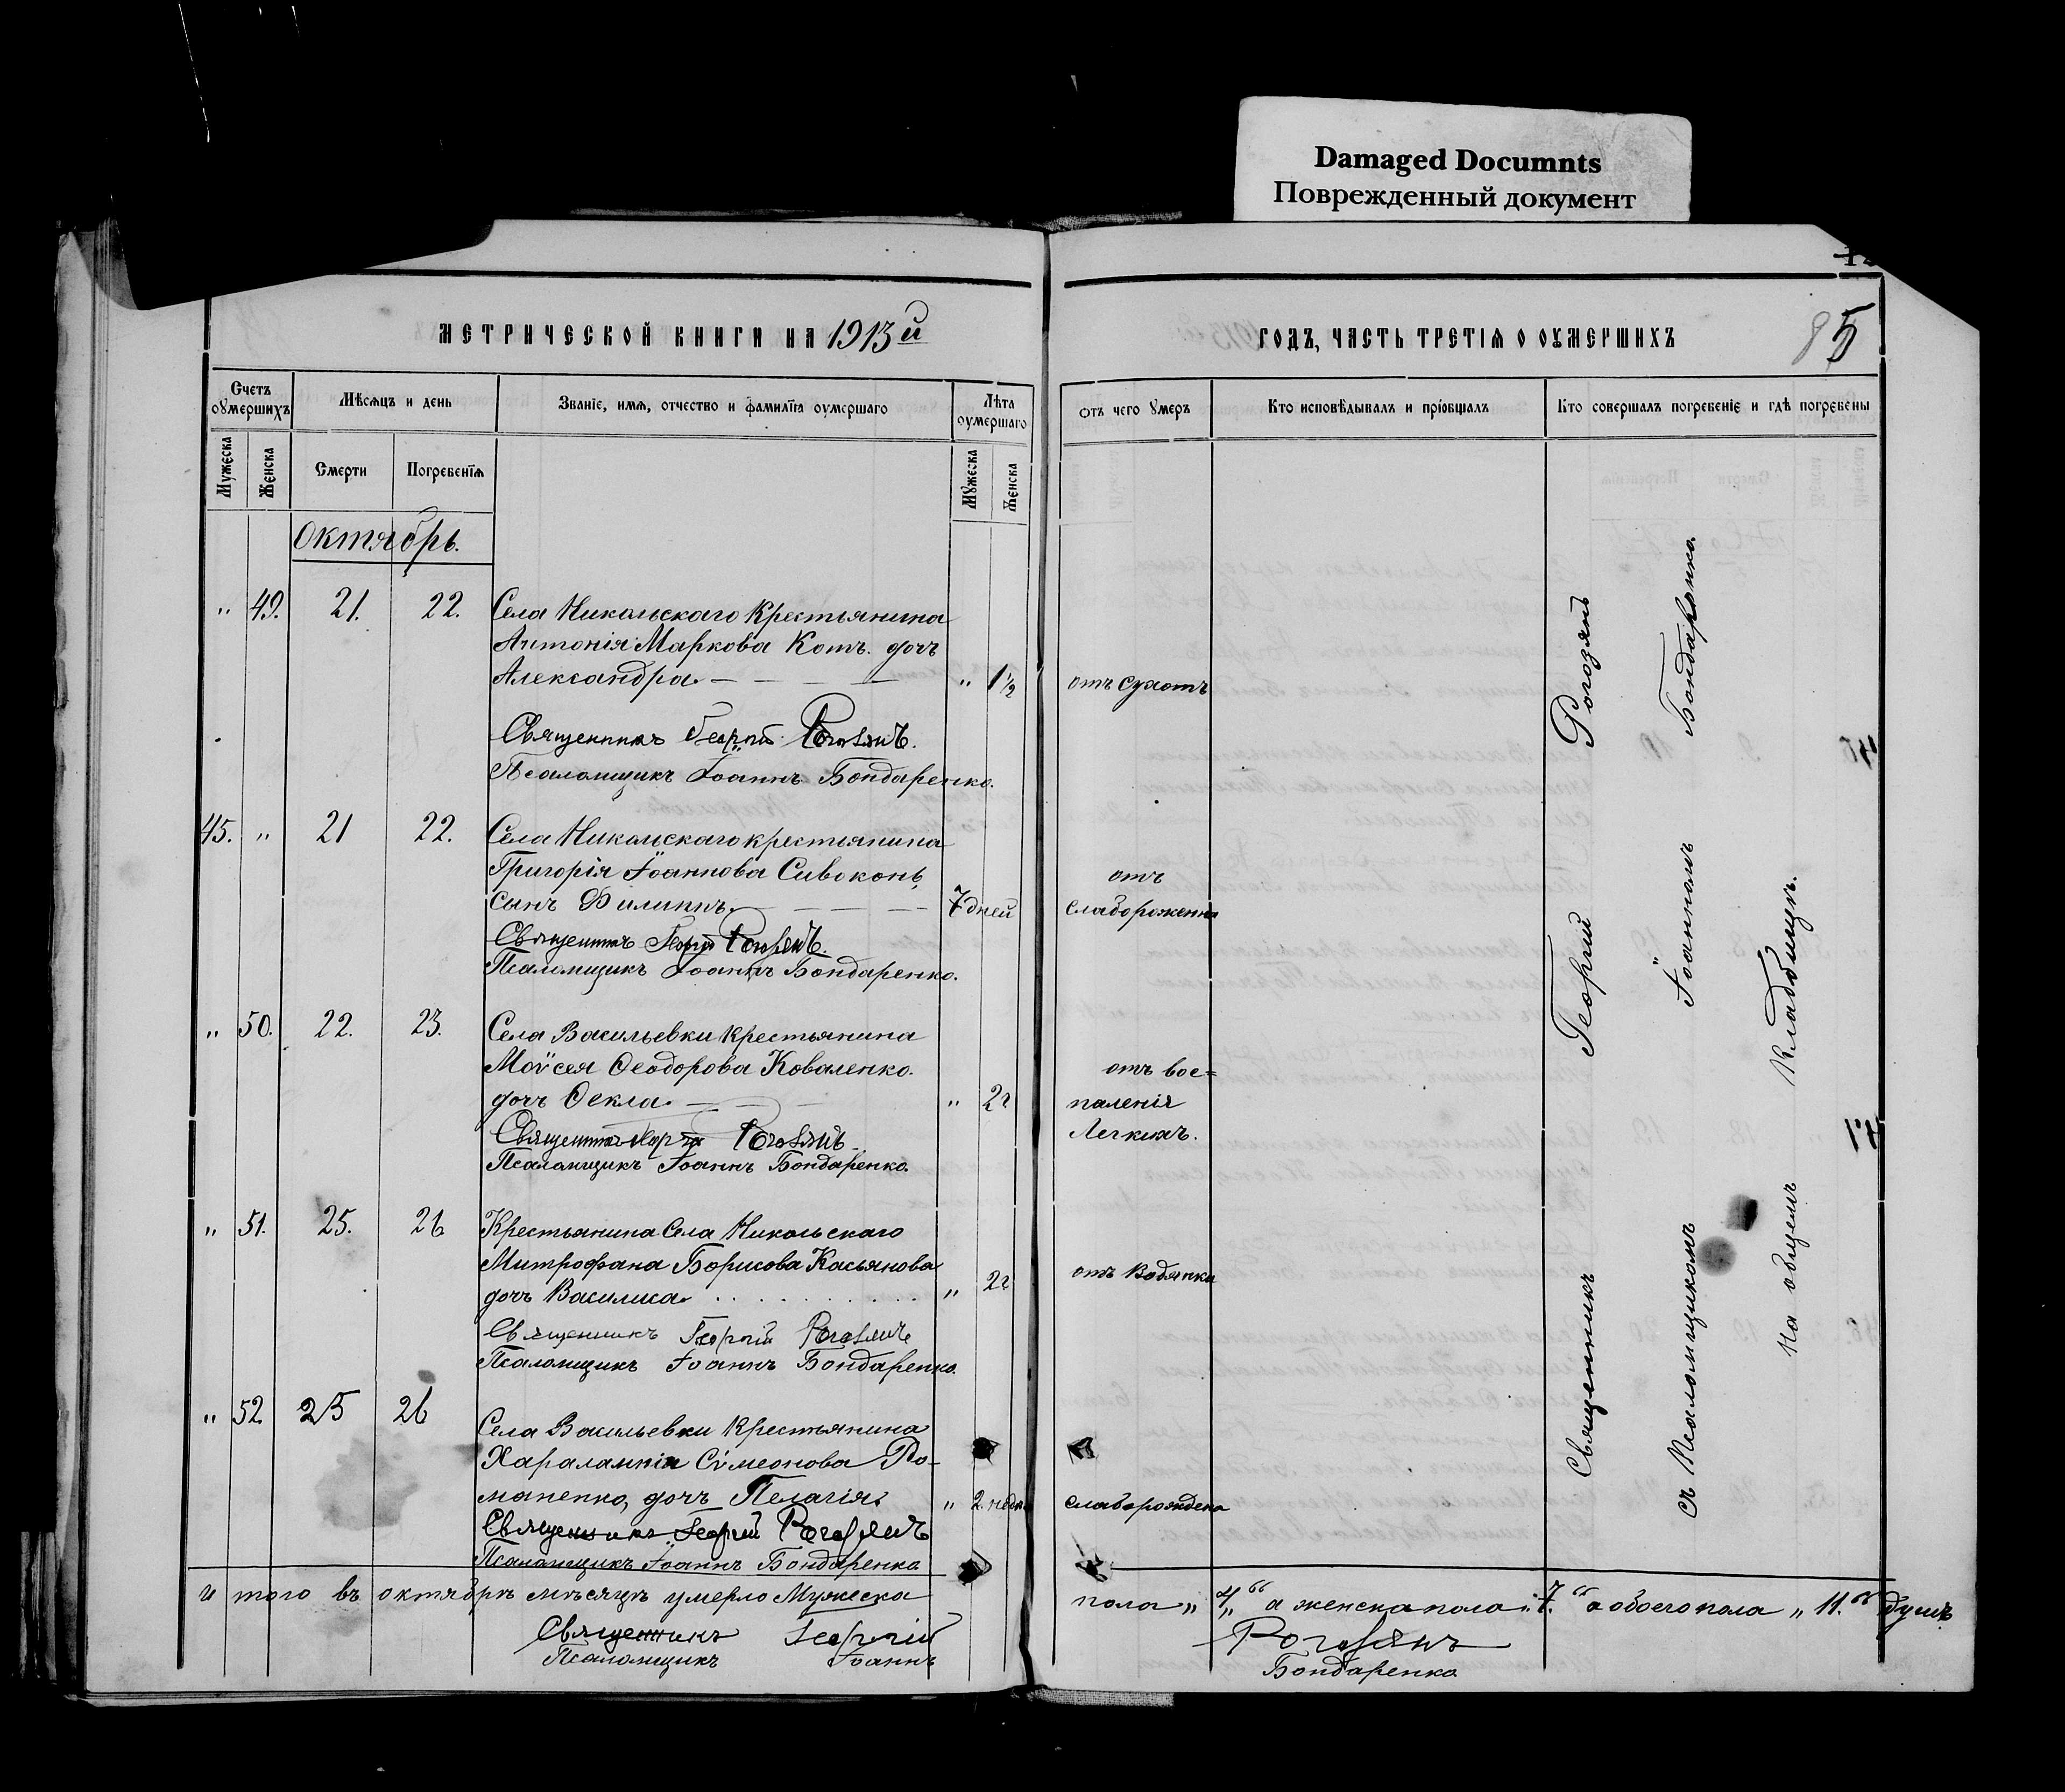 Damaged Documnts
Поврежденный документ
МЕТРИЧЕСКОЙ КНИГИ НА 1913й
ГОДЪ, ЧАСТЬ ТРЕТІЯ О ОУМЕРШИХЪ
85
Счетъ оумершихъ
Мѣсяцъ и день
Званіе, имя, отчество и фамилїя оумершаго
Лѣта оумершаго
Отъ чего умеръ
Кто исповѣдывалъ и пріобщалъ
Кто совершалъ погребеніе и гдѣ погребены
Мужеска
Женска
Смерти
Погребенїя
Мужеска
Женска
Октябрь.
" 49. 21. 22. Села Никольскаго Крестьянина
Антонія Маркова Котъ. дочь
Александра. " 1½ отъ сухотъ
Священникъ Георгій Рогозянъ.
Псаломщикъ Іоаннъ Бондаренко.
45. " 21 22. Села Никольскаго крестьянина
Григорія Іоаннова Сивоконь,
сынъ Филиппъ. 7 дней отъ слаборожения
Священникъ Георгій Рогозянъ.
Псаломщикъ Іоаннъ Бондаренко.
" 50. 22. 23. Села Васильевки крестьянина
Моѵсея Ѳеодорова Коваленко.
дочь Ѳекла. " 2г отъ вос=
паленія
Легкихъ.
Священникъ Георгій Рогозянъ
Псаломщикъ Іоаннъ Бондаренко.
" 51. 25. 26 Крестьянина Села Никольскаго
Митрофана Борисова Касьянова
дочь Василиса. " 2г отъ Водянки
Священникъ Георгій Рогозянъ
Псаломщикъ Іоаннъ Бондаренко.
" 52 25 26 Села Васильевки крестьянина
Харалампія Сѵмеонова Ро-
маненко, дочь Пелагія. " 2. недѣли слаборождена
Священникъ Георгій Рогозянъ
Псаломщикъ Іоаннъ Бондаренко
Священникъ Георгій Рогозянъ
съ Псаломщикомъ Іоанномъ Бондаренко.
На общемъ кладбищѣ.
и того въ октябрѣ мѣсяцѣ умерло Мужеска пола „4" а женска пола „7." а обоего пола „11." душъ
Священникъ Георгій Рогозянъ
Псаломщикъ Іоаннъ Бондаренко